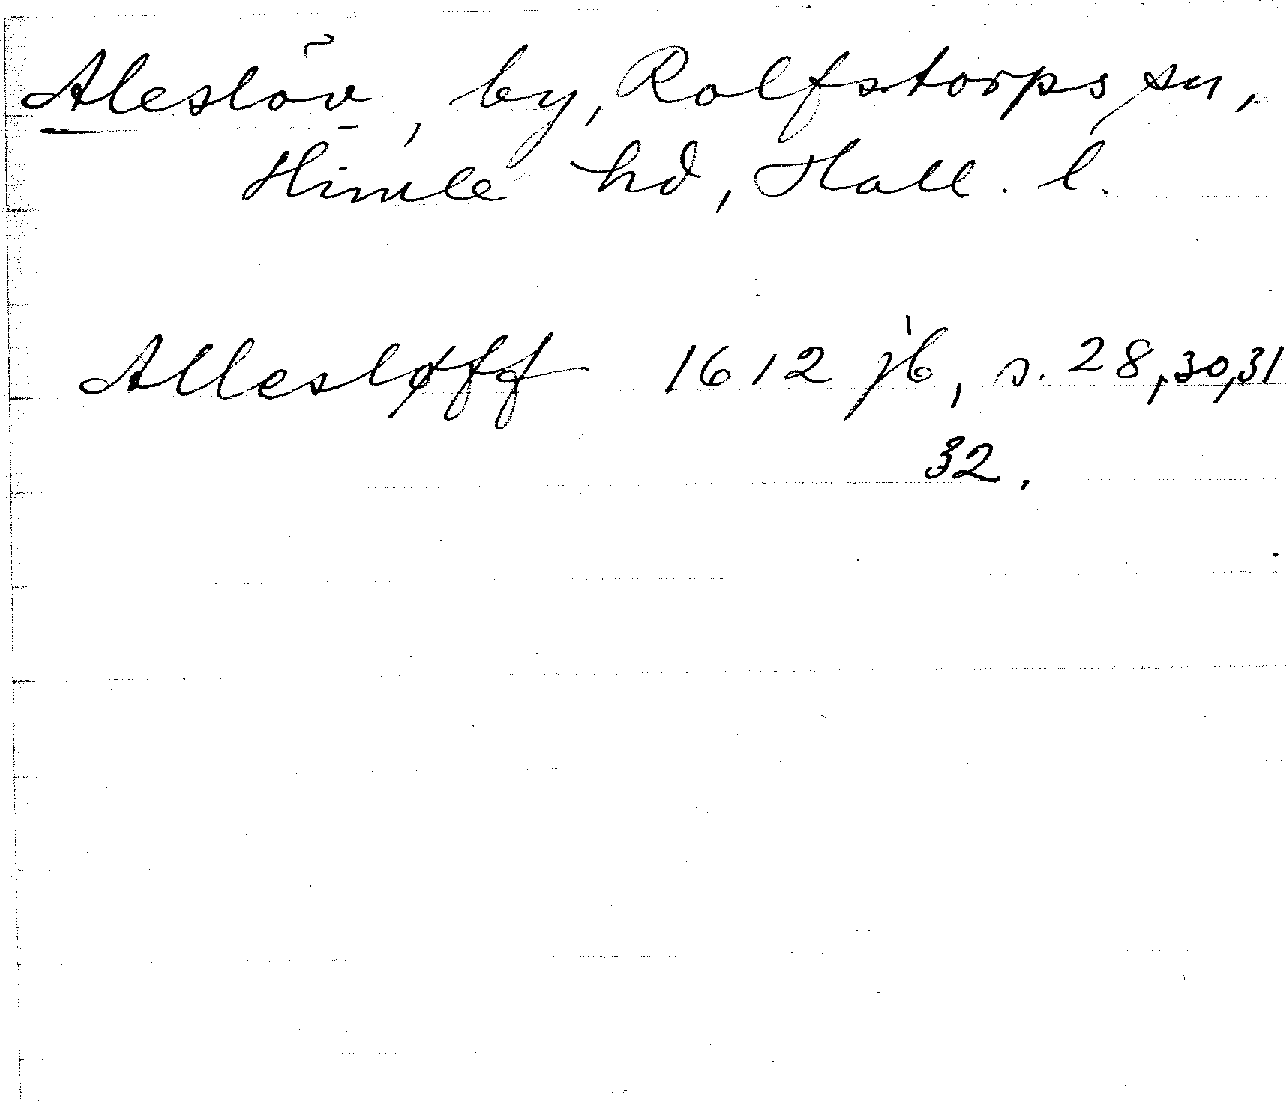 Aleslöv, by, Rolfstorps sn,
Himle hd, Hall. l.
Allesløff 1612 jb, s. 28,30,31
32.